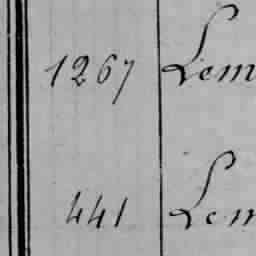 1267 Lem
441 Lem